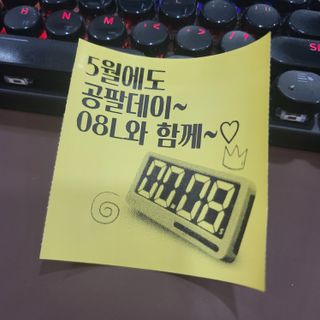 B N M
SHI
5월에도
공팔데이~
08L와 함께~♡
00.08